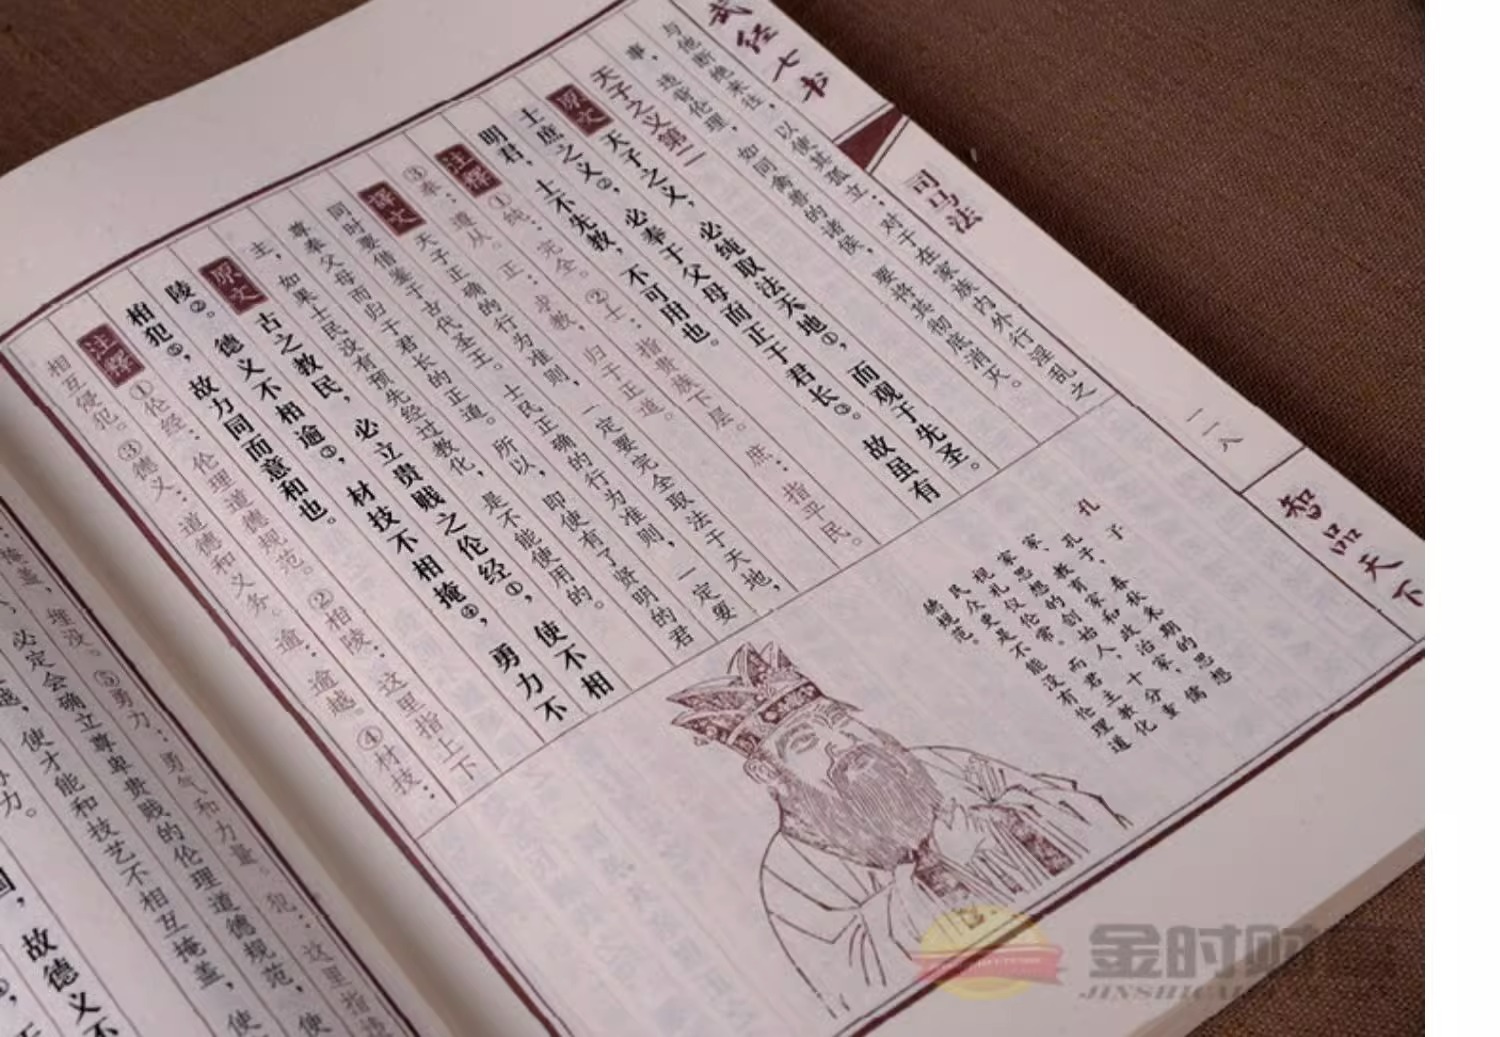 武经七书
司马法
一一八
智品天下
与他断绝来往，以使其孤立；对于在家族内外行淫乱之
事，违背伦理，如同禽兽的诸侯，要将其彻底消灭。
天子之义第二
原文 天子之义，必纯取法天地①，而观于先圣。
士庶之义②，必奉于父母而正于君长③。故虽有
明君，士不先教，不可用也。
注釋 ①纯：完全。②士：指贵族下层。庶：指平民。
③奉：遵从。正：求教，归于正道。
譯文 天子正确的行为准则，一定要完全取法于天地，
同时要借鉴于古代圣王。士民正确的行为准则，一定要
尊奉父母而归于君长的正道。所以，即使有了贤明的君
主，如果士民没有预先经过教化，是不能使用的。
原文 古之教民，必立贵贱之伦经①，使不相
陵②。德义不相逾③，材技不相掩④，勇力不
相犯⑤，故力同而意和也。
注釋 ①伦经：伦理道德规范。②相陵：这里指上下
相互侵犯。③德义：道德和义务。逾：逾越。④材技：
孔子
孔子，春秋末期的思想
家、教育家和政治家，儒
家思想的创始人。十分重
视礼仪伦常。而君主教化
民众更是不能没有伦理道
德规范。
掩盖，埋没。⑤勇力：勇气和力量。犯：这里指违
必定会确立尊卑贵贱的伦理道德规范，使
越，使才能和技艺不相互掩盖，使
力。
国，故德义不
金时财